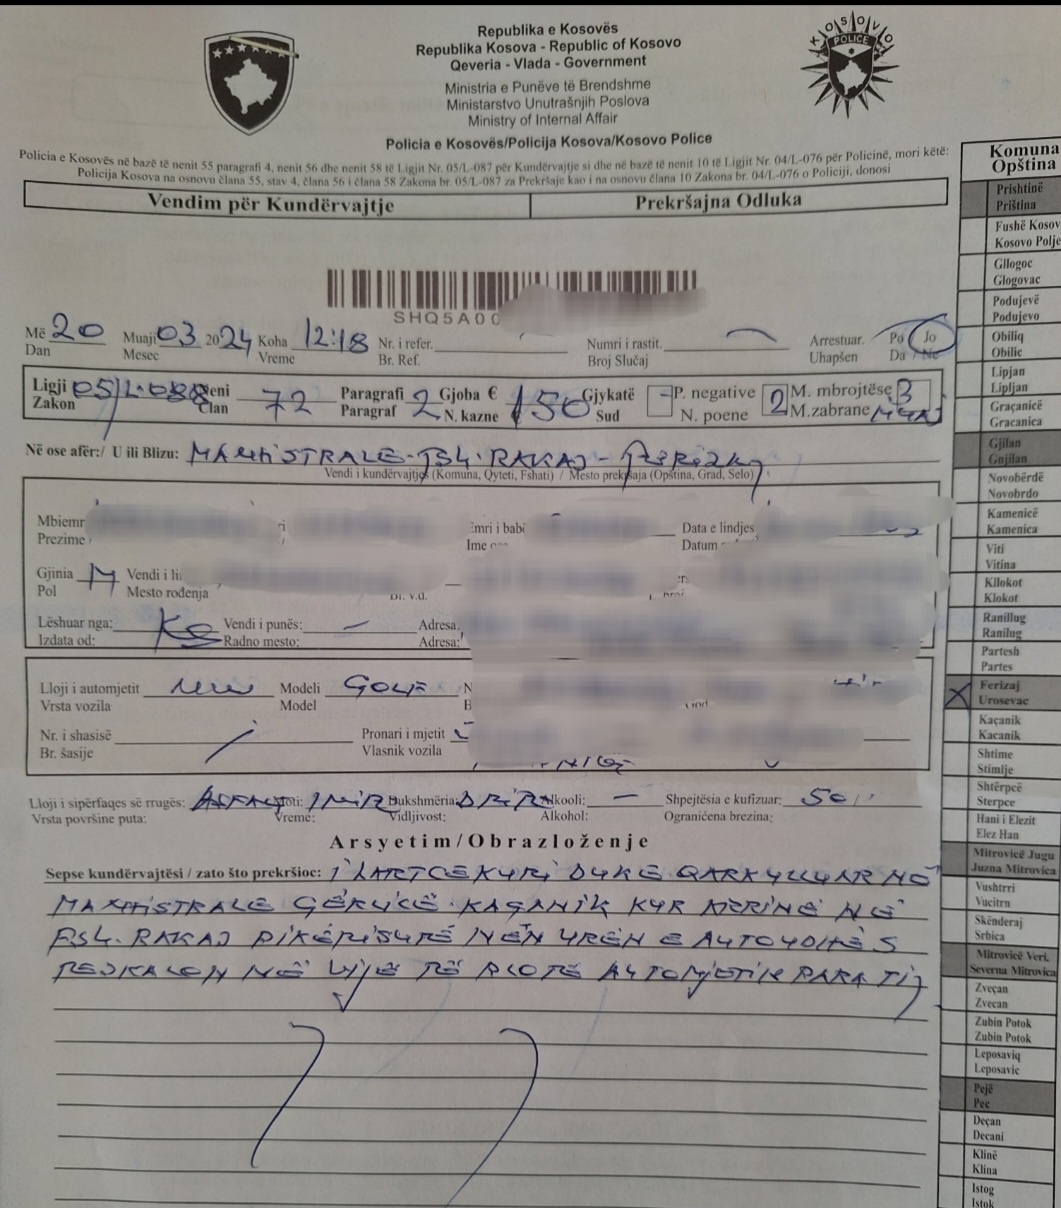 Republika e Kosovës
Republika Kosova - Republic of Kosovo
Qeveria - Vlada - Government
Ministria e Punëve të Brendshme
Ministarstvo Unutrašnjih Poslova
Ministry of Internal Affair
Policia e Kosovës/Policija Kosova/Kosovo Police
KOSOVO
POLICE
Policia e Kosovës në bazë të nenit 55 paragrafi 4, nenit 56 dhe nenit 58 të Ligjit Nr. 05/L-087 për Kundërvajtje si dhe në bazë të nenit 10 të Ligjit Nr. 04/L-076 për Policinë, mori këtë:
Policija Kosova na osnovu člana 55, stav 4, člana 56 i člana 58 Zakona br. 05/L-087 za Prekršaje kao i na osnovu člana 10 Zakona br. 04/L-076 o Policiji, donosi
Vendim për Kundërvajtje Prekršajna Odluka
SHQ5A00
Më 20 Muaji 03 2024 Koha 12:18 Nr. i refer. Numri i rastit. Arrestuar. Po Jo
Dan Mesec Vreme Br. Ref. Broj Slučaj Uhapšen Da / Ne
Ligji 05/L-088 Neni 72 Paragrafi 2 Gjoba € 150 Gjykatë P. negative 2 M. mbrojtëse 3
Zakon Član Paragraf N. kazne Sud N. poene M.zabrane MUAJ
Në ose afër:/ U ili Blizu: MAGJISTRALE - FSH. RAKAJ -
Vendi i kundërvajtjes (Komuna, Qyteti, Fshati) / Mesto prekršaja (Opština, Grad, Selo)
Mbiemr Emri i babi Data e lindjes
Prezime Ime Datum
Gjinia M Vendi i li
Pol Mesto rođenja Br. v.d.
Lëshuar nga: KS Vendi i punës: – Adresa
Izdata od: Radno mesto: Adresa:
Lloji i automjetit Modeli GOLF N
Vrsta vozila Model B
Nr. i shasisë / Pronari i mjetit
Br. šasije Vlasnik vozila
Lloji i sipërfaqes së rrugës: ASFALT Moti: I MIR Dukshmëria: Alkooli: – Shpejtësia e kufizuar: 50
Vrsta površine puta: Vreme: Vidljivost: Alkohol: Ograničena brezina:
Arsyetim/Obrazloženje
Sepse kundërvajtësi / zato što prekršioc: I LARTCEKURI DUKE QARKULLUAR NË
MAGJISTRALE GËRLICË - KAÇANIK KUR ARRINË NË
FSH. RAKAJ PIKËRISHTË NËN URËN E AUTOUDHËS
TEJKALON NË VIJË TË PLOTË AUTOMJETIN PARA TIJ
Komuna
Opština
Prishtinë
Priština
Fushë Kosov
Kosovo Polje
Gllogoc
Glogovac
Podujevë
Podujevo
Obiliq
Obilic
Lipjan
Lipljan
Graçanicë
Gracanica
Gjilan
Gnjilan
Novobërdë
Novobrdo
Kamenicë
Kamenica
Viti
Vitina
Kllokot
Klokot
Ranillug
Ranilug
Partesh
Partes
X Ferizaj
Urosevac
Kaçanik
Kacanik
Shtime
Stimlje
Shtërpcë
Sterpce
Hani i Elezit
Elez Han
Mitrovicë Jugu
Juzna Mitrovica
Vushtrri
Vucitrn
Skënderaj
Srbica
Mitrovicë Veri.
Severna Mitrovica
Zveçan
Zvecan
Zubin Potok
Zubin Potok
Leposaviq
Leposavic
Pejë
Pec
Deçan
Decani
Klinë
Klina
Istog
Istok